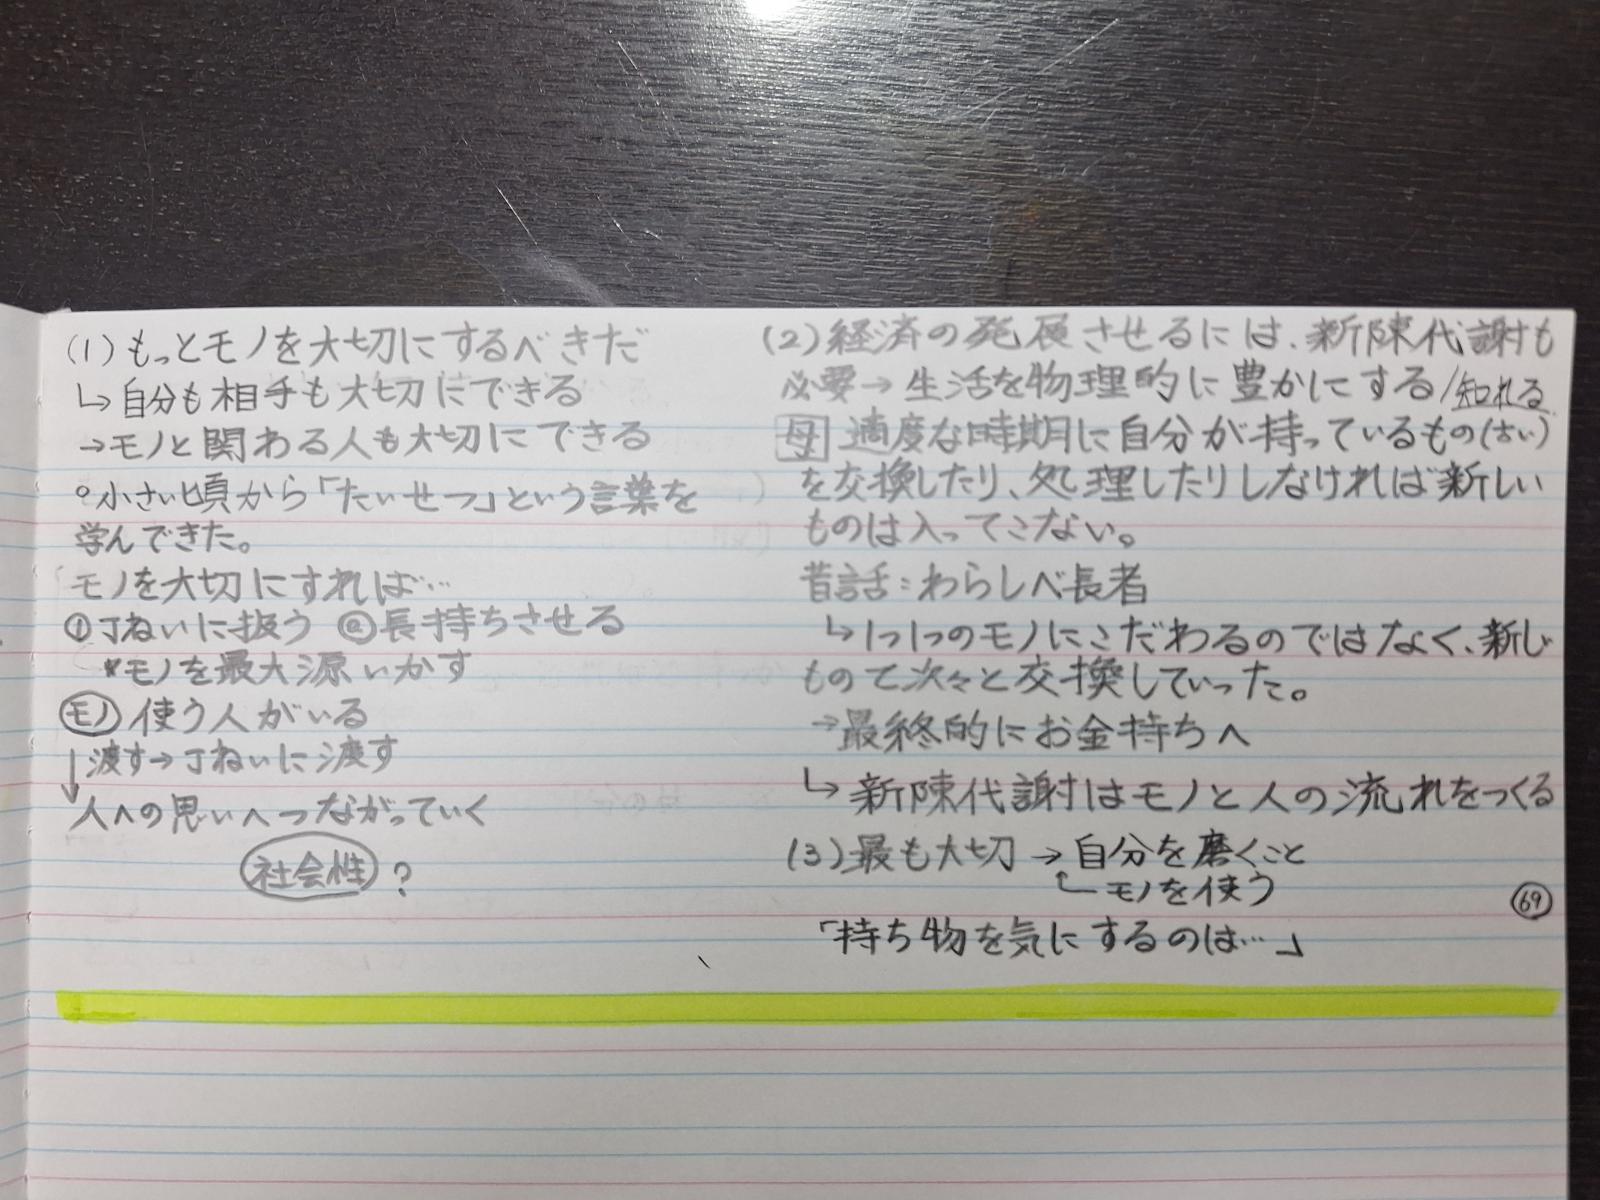 (1)もっとモノを大切にするべきだ
↳自分も相手も大切にできる
→モノと関わる人も大切にできる
○小さい頃から「たいせつ」という言葉を
学んできた。
モノを大切にすれば…
①丁ねいに扱う ②長持ちさせる
*モノを最大源いかす
モノ 使う人がいる
↓渡す→丁ねいに渡す
人への思いへつながっていく
社会性?
(2)経済の発展させるには、新陳代謝も
必要→生活を物理的に豊かにする/知れる
母 適度な時期に自分が持っているもの(古い)
を交換したり、処理したりしなければ新しい
ものは入ってこない。
昔話:わらしべ長者
↳1つ1つのモノにこだわるのではなく、新しい
ものて次々と交換していった。
→最終的にお金持ちへ
↳新陳代謝はモノと人の流れをつくる
(3)最も大切→自分を磨くこと
モノを使う
69
「持ち物を気にするのは…」